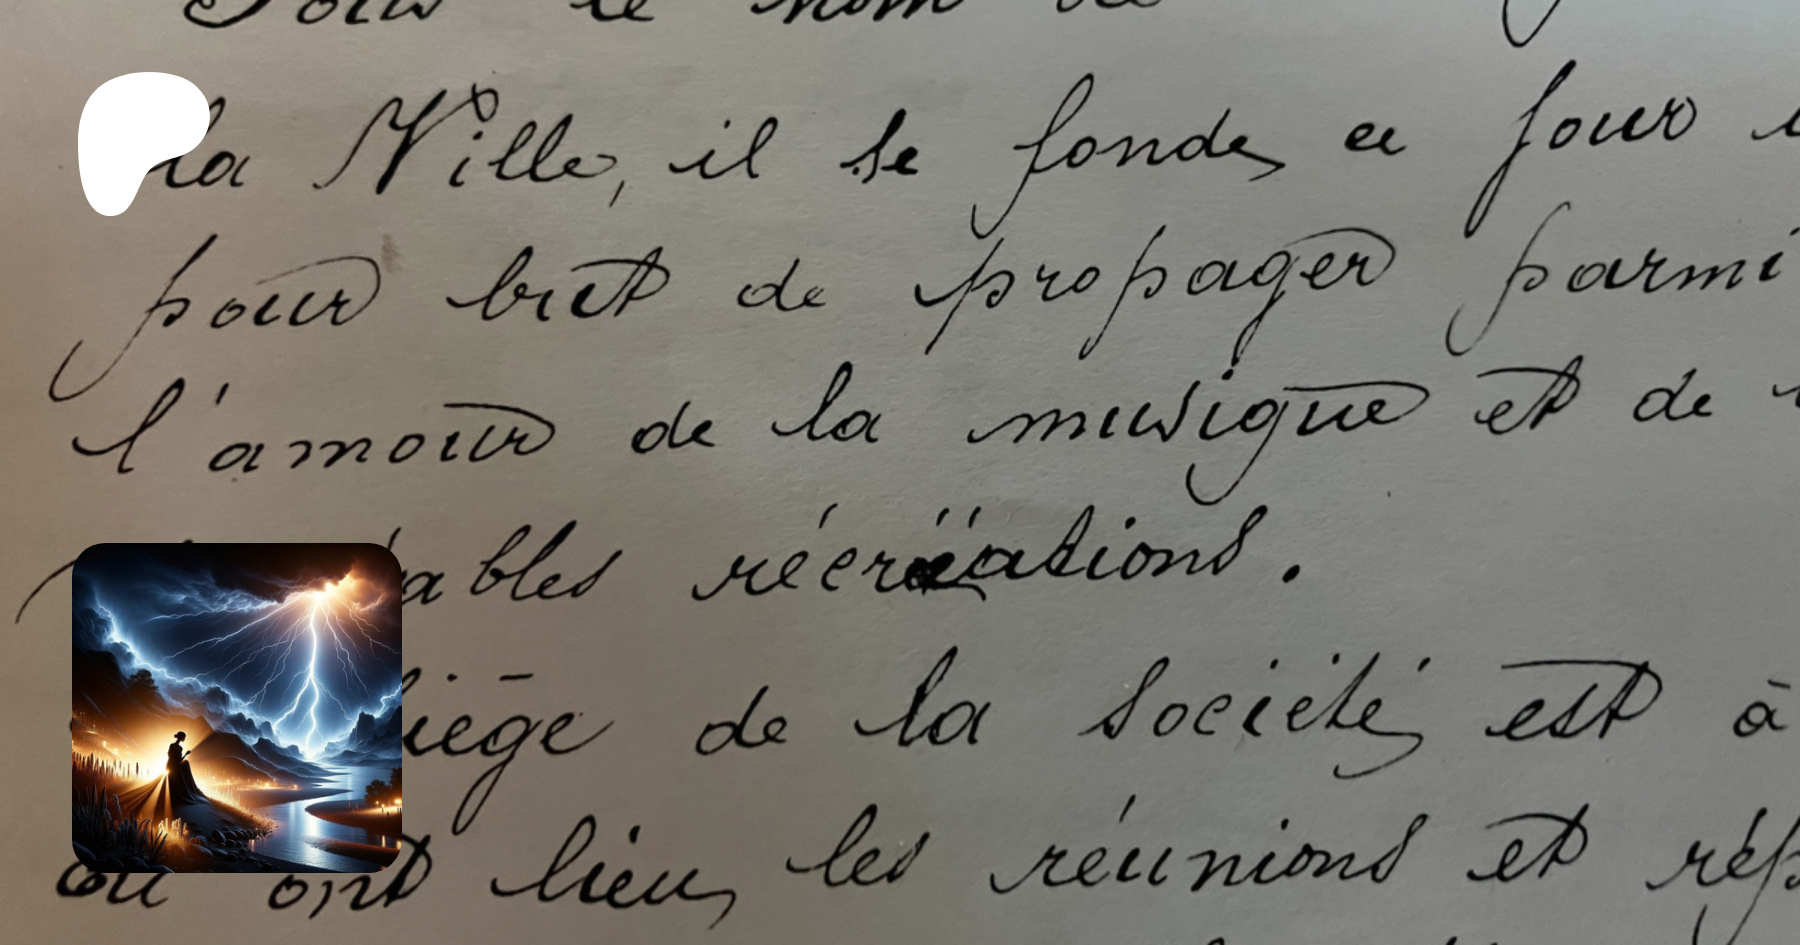 Sous le nom de
la Ville, il se fonde, ce jour
pour but de propager parmi
l'amour de la musique et de
ables récréations.
iège de la société, est à
où ont lieu, les réunions et rép